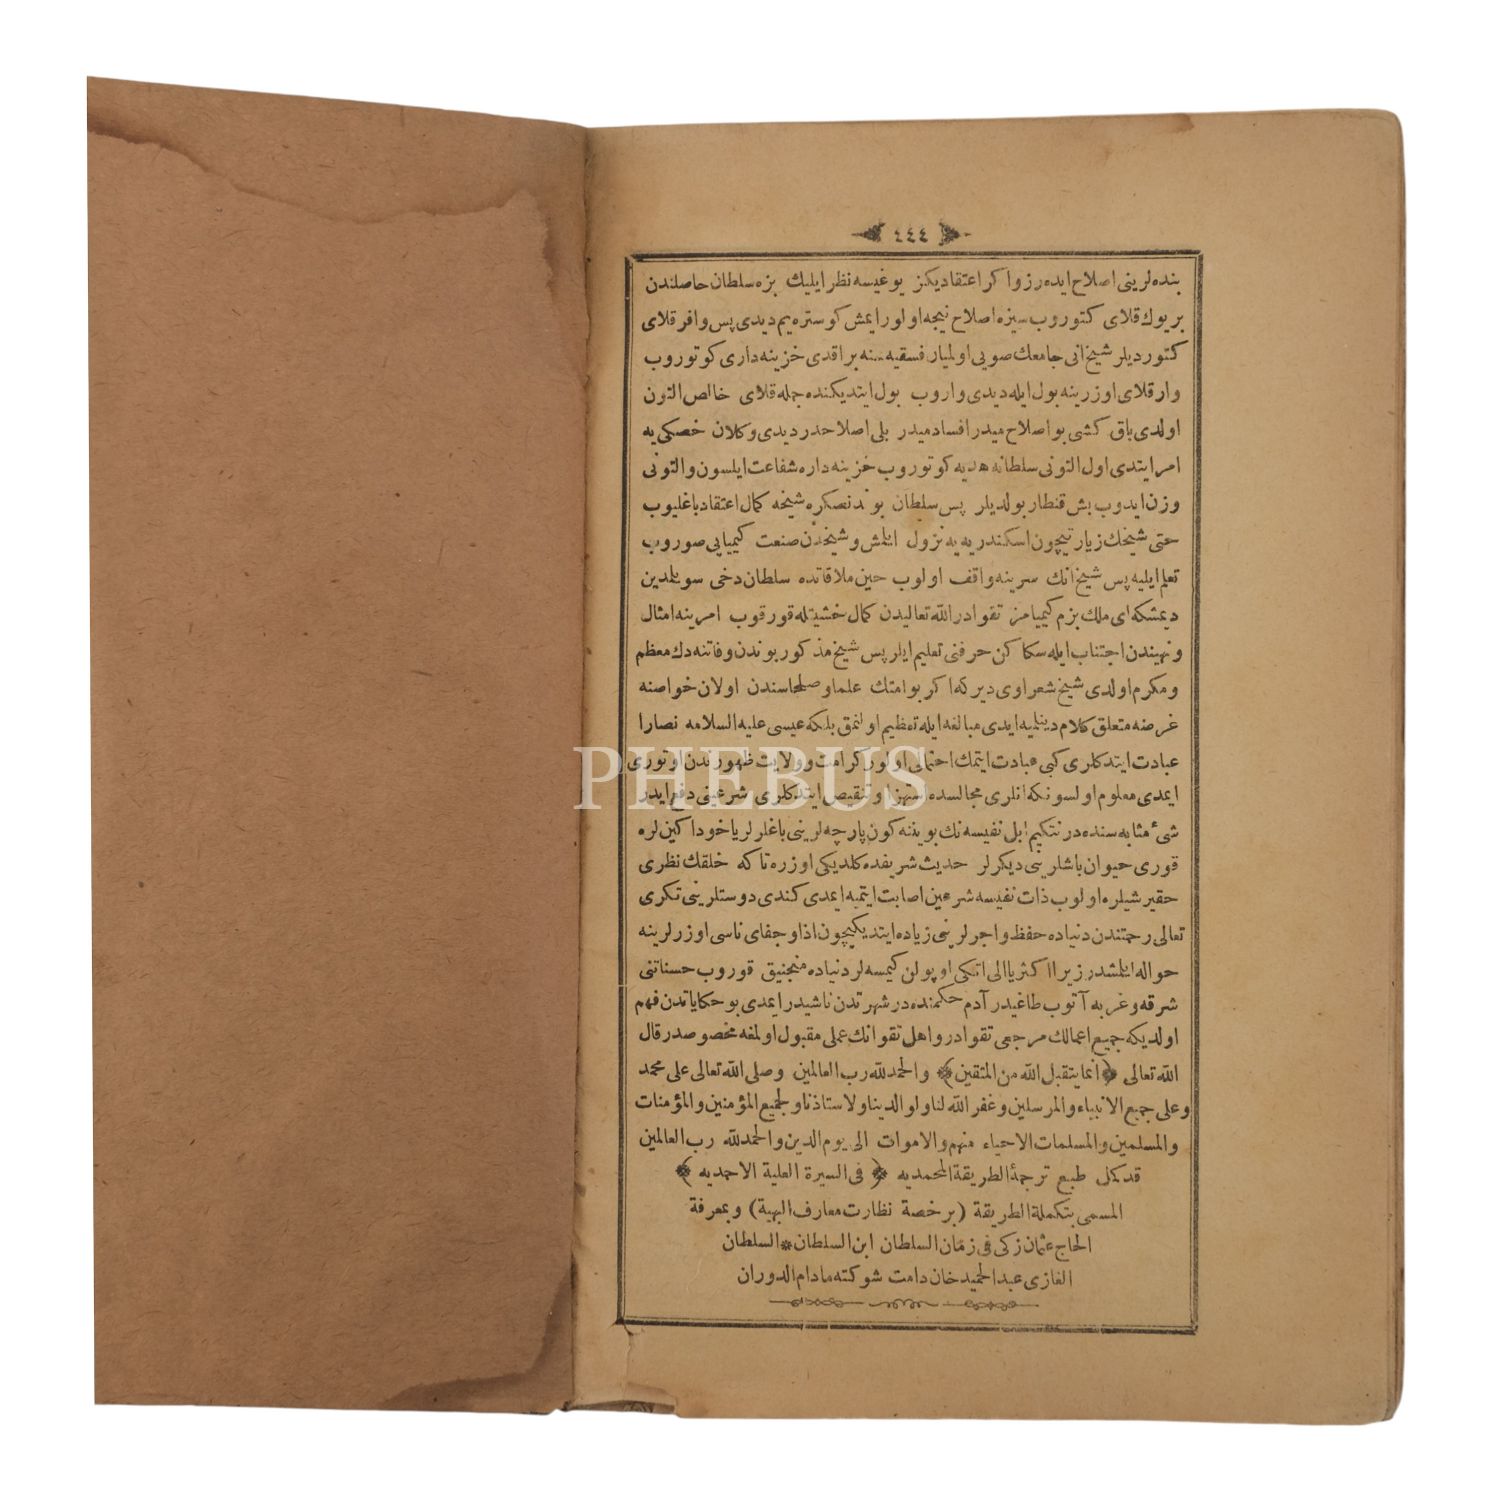 ٤٤٤
بنده لرینی اصلاح ایده رز واکر اعتقادیکز یوغیسه نظر ایلیك بزه سلطان حاصلندن
بریوك قلای کتوروب سیزه اصلاح نیجه اولور ایمش کوستره یم دیدی پس وافر قلای
کتوردیلر شیخ انی جامعك صویی اولمیار فسقیه سنه براقدی خزینه داری کوتوروب
وار قلای اوزرینه بول ایله دیدی واروب بول ایتدیکنده جمله قلای خالص التون
اولدی باق کشی بو اصلاح میدر افساد میدر بلی اصلاحدر دیدی وکلان خصکی یه
امر ایتدی اول التونی سلطانه هدیه کوتوروب خزینه داره شفاعت ایلسون والتونی
وزن ایدوب بش قنطار بولدیلر پس سلطان بوندنصکره شیخه کمال اعتقاد باغلیوب
حتی شیخك زیارتیچون اسکندریه یه نزول ایلمش وشیخدن صنعت کیمیایی صوروب
تعلم ایلیه پس شیخ انك سرینه واقف اولوب حین ملاقاتده سلطان دخی سویلمدین
دیمشکه ای ملك بزم کیمیامز تقوادر الله تعالیدن کمال خشیتله قورقوب امرینه امثال
ونهیندن اجتناب ایله سکا کن حرفنی تعلیم ایلر پس شیخ مذکور بوندن وفاتنه دك معظم
ومکرم اولدی شیخ شعراوی دیرکه اکر بو امتك علما وصلحاسندن اولان خواصنه
غرضه متعلق کلام دینلمیه ایدی مبالغه ایله تعظیم اولنمق بلکه عیسی علیه السلامه نصارا
عبادت ایتدکلری کبی عبادت ایتمك احتمالی اولور کرامت وولایت ظهورندن اوتوری
ایمدی معلوم اولسونکه انلری مجالسده استهزا وتنقیص ایتدکلری شرعینی دفع ایدر
شیٔ مثابه سنده در نتکیم ابل نفیسه نك بویننه کون پارچه لرینی باغلرلر یاخود اکین لره
قوری حیوان باشلرینی دیکرلر حدیث شریفده کلدیکی اوزره تاکه خلقك نظری
حقیر شیلره اولوب ذات نفیسه شرعین اصابت ایتمیه ایمدی کندی دوستلرینی تکری
تعالی رحمتندن دنیاده حفظ واجرلرینی زیاده ایتدیکیچون اذا وجفای ناسی اوزرلرینه
حواله ایلمشدر زیرا اکثریا الی اتکی اوپولن کیمسه لر دنیاده منجنیق قوروب حسناتنی
شرقه وغربه آتوب طاغیدر آدم حکمنده در شهرتدن ناشیدر ایمدی بو حکایاتدن فهم
اولدیکه جمیع اعمالك مرجعی تقوادر واهل تقوانك عملی مقبول اولمغه مخصوصدر قال
الله تعالی ﴿انما یتقبل الله من المتقین﴾ والحمد لله رب العالمین وصلی الله تعالی علی محمد
وعلی جمیع الانبیاء والمرسلین وغفر الله لنا ولوالدینا ولاستاذنا ولجمیع المؤمنین والمؤمنات
والمسلمین والمسلمات الاحیاء منهم والاموات الی یوم الدین والحمد لله رب العالمین
قد کمل طبع ترجمة الطریقة المحمدیه ﴿فی السیرة العلیة الاحمدیه﴾
المسمی بتکملة الطریقة (برخصة نظارت معارف البهیة) وبمعرفة
الحاج عثمان زکی فی زمان السلطان ابن السلطان * السلطان
الغازی عبد الحمید خان دامت شوکته مادام الدوران
PHEBUS